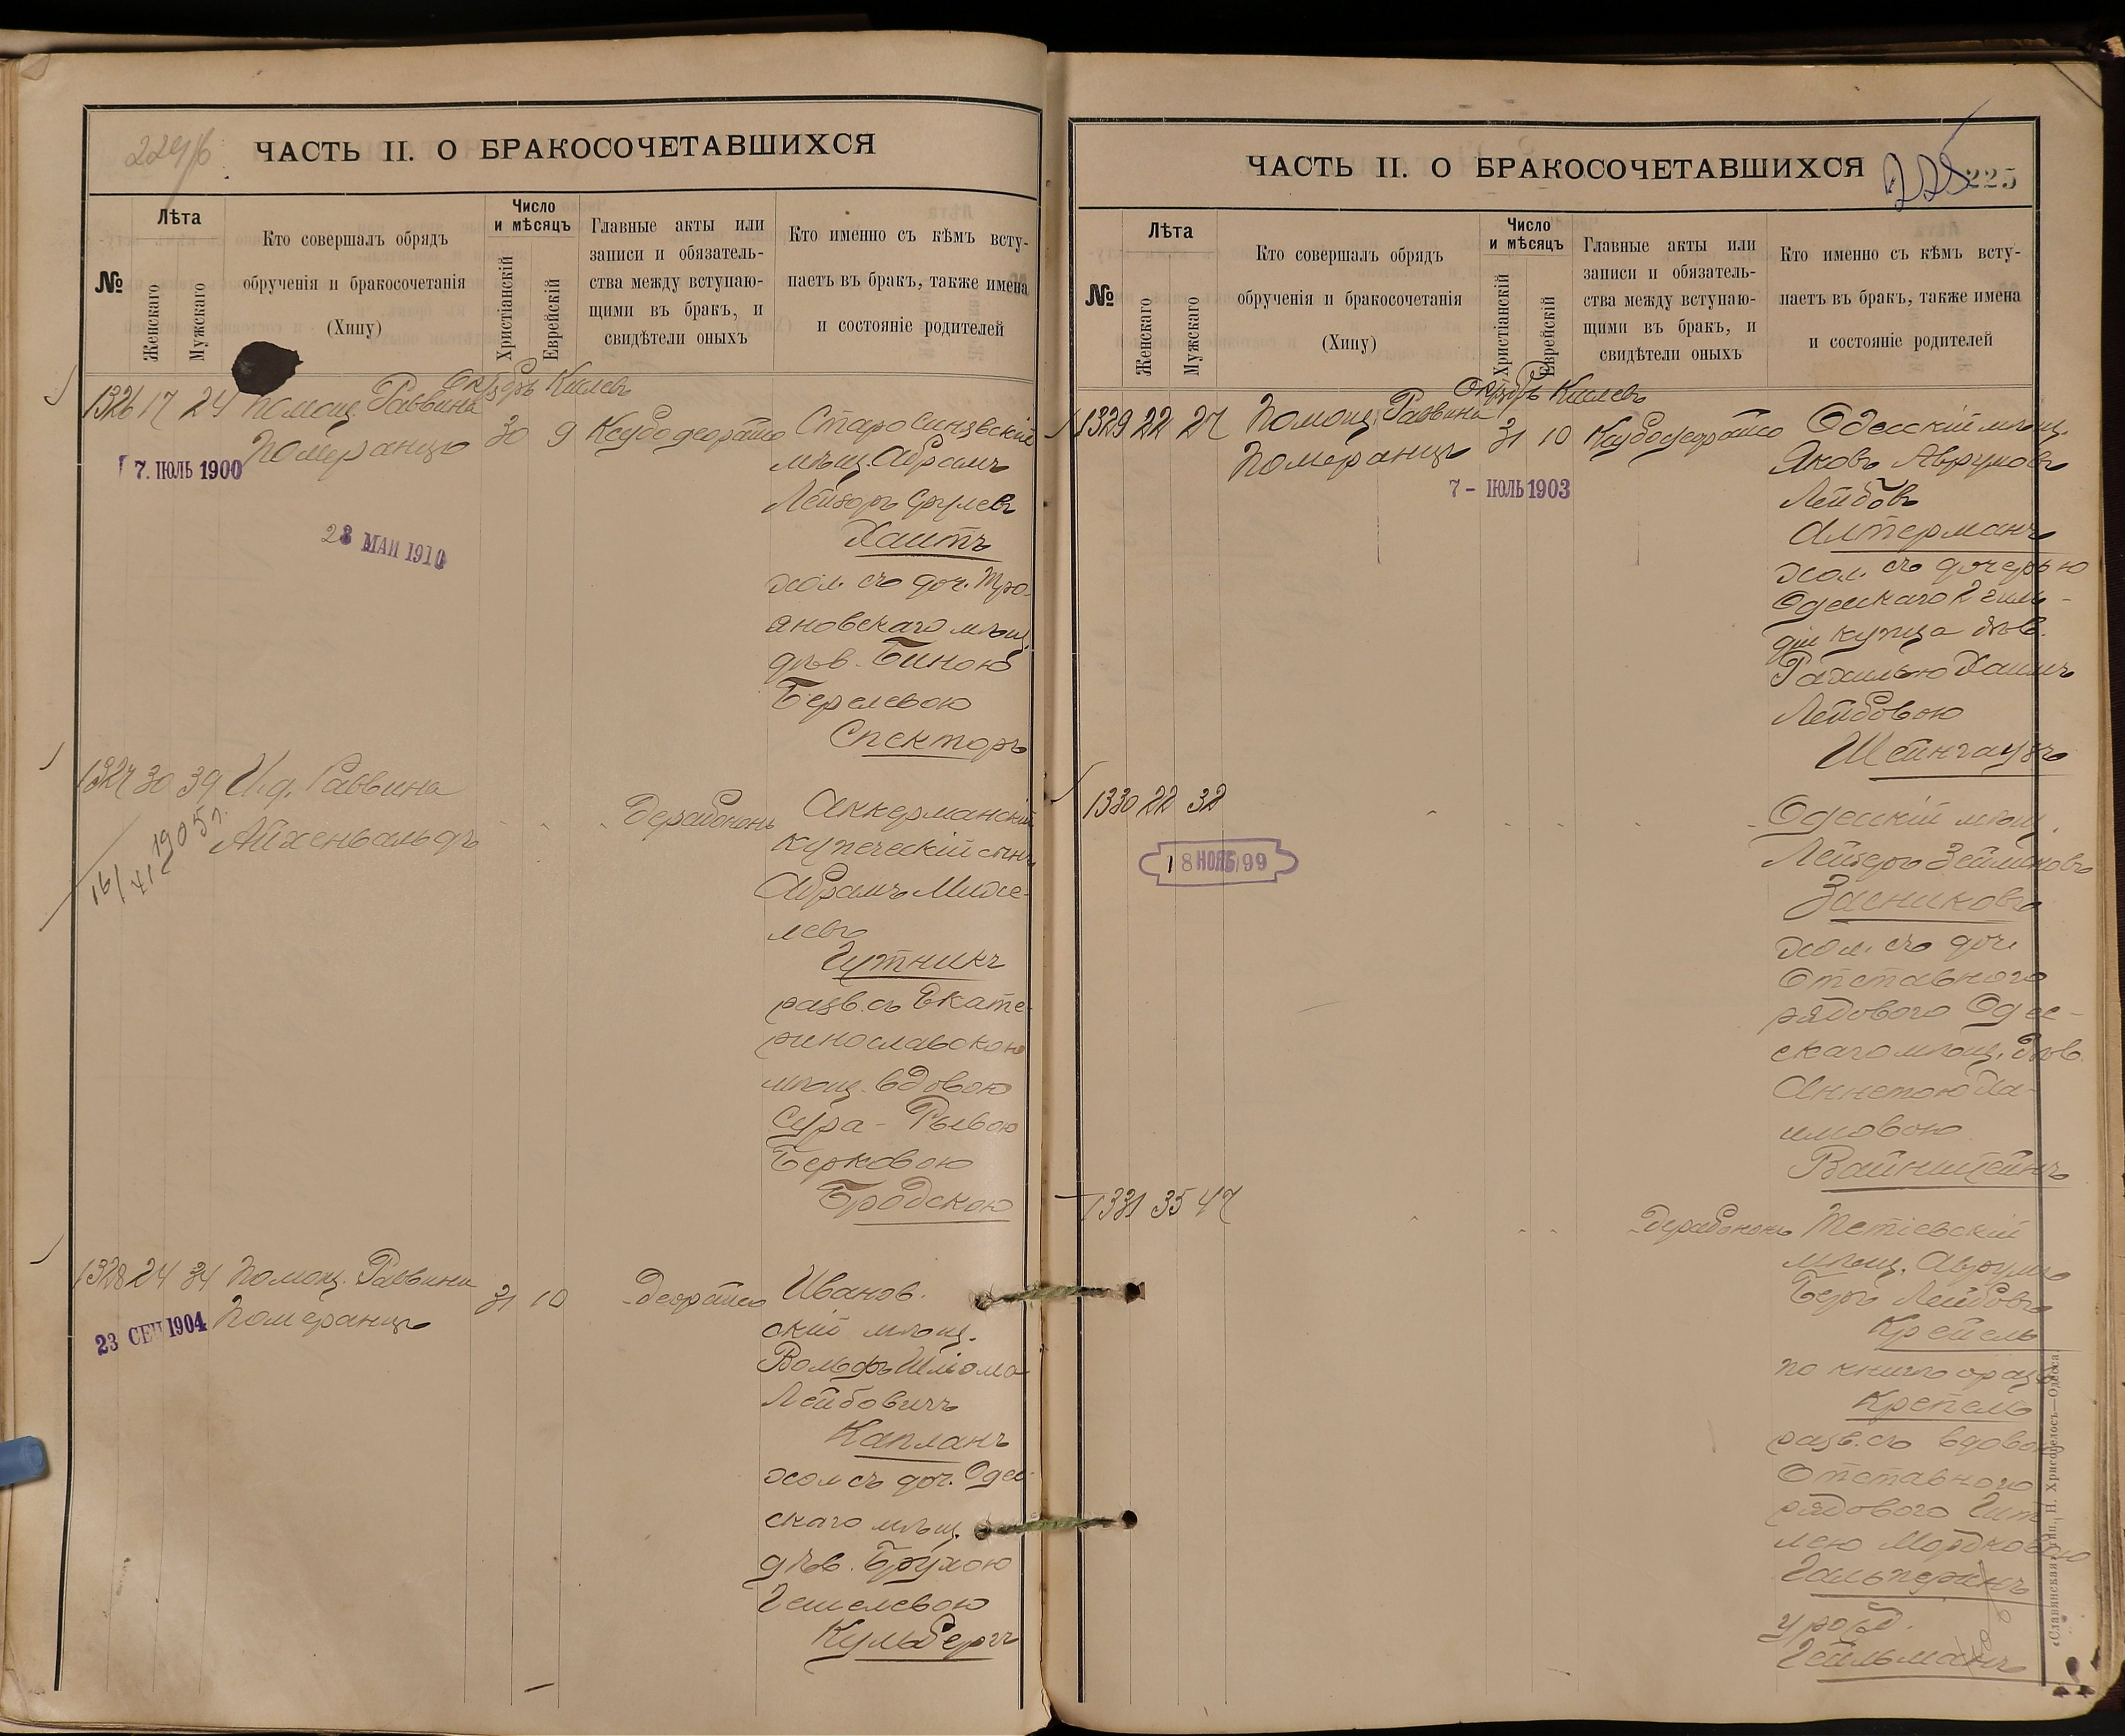 224/б
ЧАСТЬ II. О БРАКОСОЧЕТАВШИХСЯ
№
Лѣта
Женскаго
Мужскаго
Кто совершалъ обрядъ
обрученія и бракосочетанія
(Хипу)
Число
и мѣсяцъ
Христіанскій
Еврейскій
Главные акты или
записи и обязатель-
ства между вступаю-
щими въ бракъ, и
свидѣтели оныхъ
Кто именно съ кѣмъ всту-
паетъ въ бракъ, также имена
и состояніе родителей
Октябрь Кислевъ
1326 17 24 Помощ. Раввина
Померанцъ 30 9
7. ІЮЛЬ 1900
28 МАИ 1910
мѣщ. Абрамъ
Лейзоръ Срулевъ
Хаитъ
хол. съ доч. Тро-
яновскаго мѣщ.
дѣв. Биною
Берелевою
Спекторъ
1327 30 39 И.д. Раввина
Айхенвальдъ
16/XII 1905 г.
Аккерманскій
купеческій сынъ
Абрамъ Михе-
левъ
Гутникъ
разв. съ Екате-
ринославскою
мѣщ. вдовою
Сура-Рывою
Берковою
Бродскою
1328 24 34 Помощ. Раввина
Померанцъ 31 10
23 СЕН 1904
Иванов.
скій мѣщ.
Вольфъ Шліома
Лейбовичъ
Капланъ
хол съ доч. Одес-
скаго мѣщ.
дѣв. Брухою
Гешелевою
Кульбергъ
ЧАСТЬ II. О БРАКОСОЧЕТАВШИХСЯ
225
225
№
Лѣта
Женскаго
Мужскаго
Кто совершалъ обрядъ
обрученія и бракосочетанія
(Хипу)
Число
и мѣсяцъ
Христіанскій
Еврейскій
Главные акты или
записи и обязатель-
ства между вступаю-
щими въ бракъ, и
свидѣтели оныхъ
Кто именно съ кѣмъ всту-
паетъ въ бракъ, также имена
и состояніе родителей
Октябрь Кислевъ
1329 22 27 Помощ. Раввина
Померанцъ 31 10
7 - ІЮЛЬ 1903
Одесскій мѣщ.
Яковъ Аврумовъ
Лейбовъ
Алтерманъ
хол. съ дочерью
Одесскаго 2 гиль-
діи купца дѣв.
Рахилью Хаимъ
Лейбовою
Шейнгаузъ
1330 22 32
18 НОЯБ 99
Одесскій мѣщ.
Лейзеръ Зеймановъ
Засниковъ
хол. съ доч.
Отставного
рядового Одес-
скаго мѣщ. дѣв.
Аннетою Ха-
имовою
Вайнштейнъ
1331 35 47
Тетіевскій
мѣщ. Аврумъ
Беръ Лейбовъ
Крейель
Крепель
разв. съ вдовою
Отставного
рядового Гит
лею Мордковою
Гальперинъ
урожд.
Гейльманъ
«Славянская» тип., Н. Хрисогелосъ—Одесса.